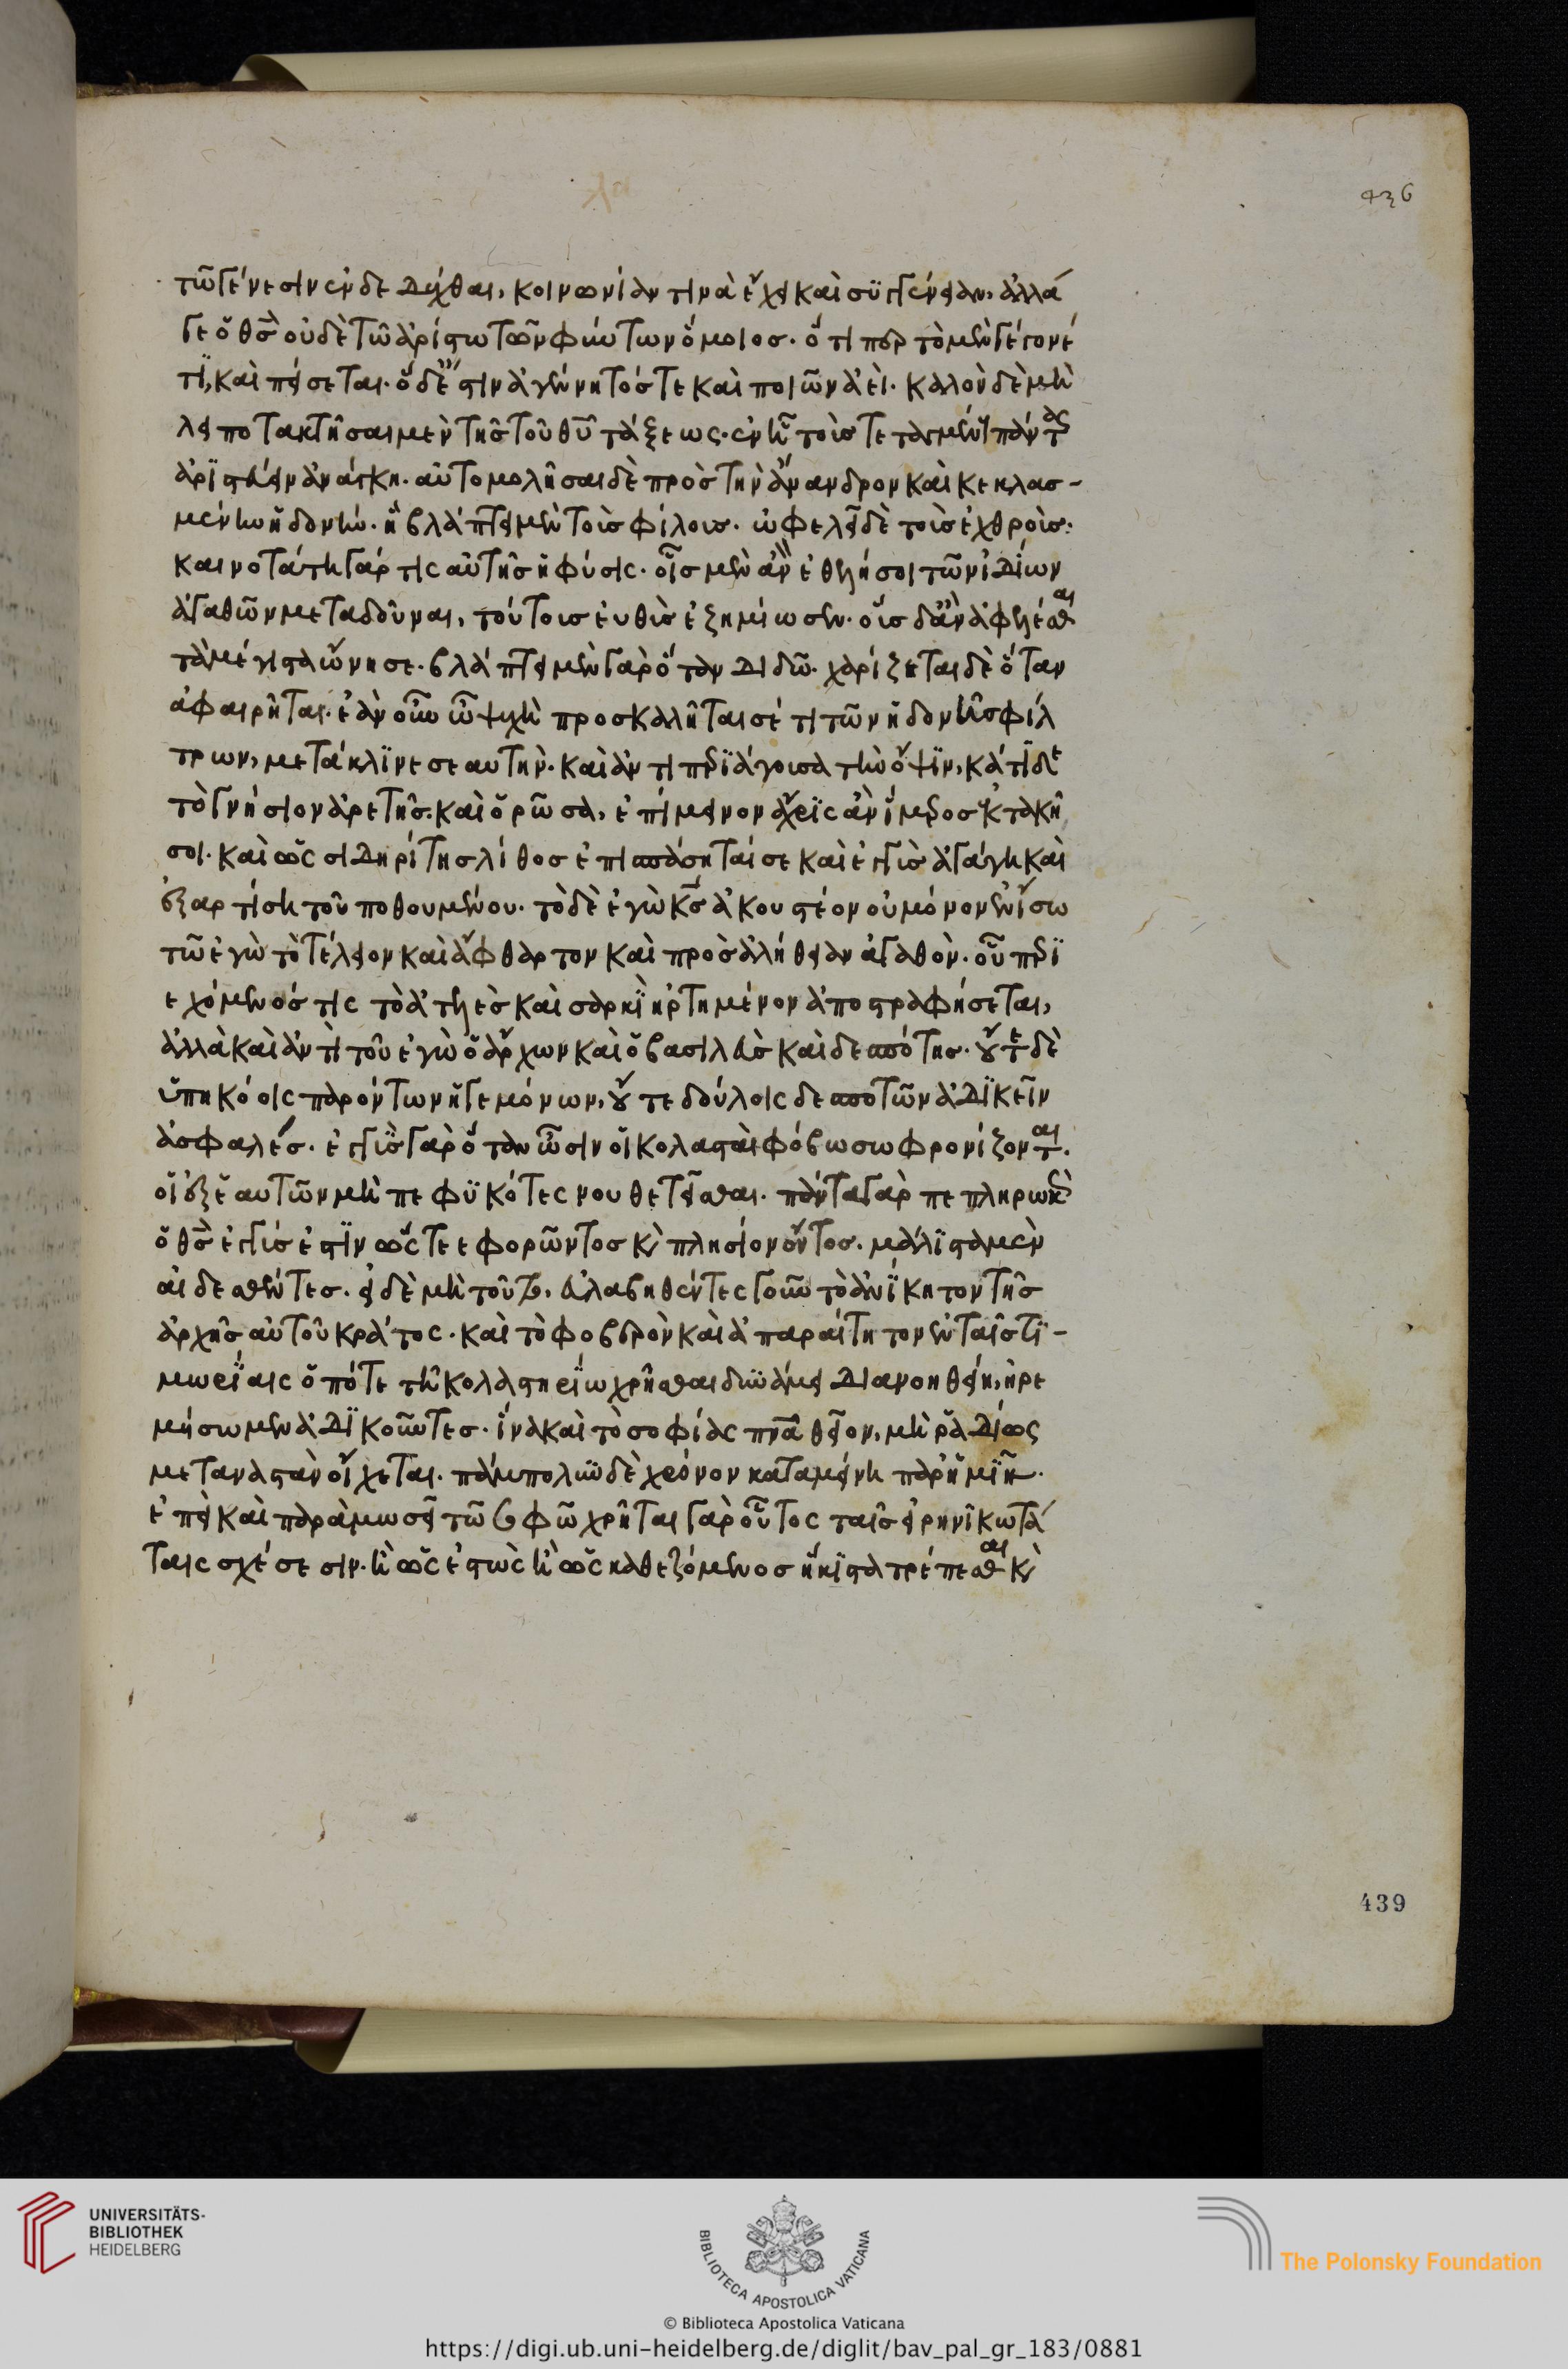 τῶ γένεσιν ἐνδεδεῖχθαι, κοινωνίαν τινὰ ἔχει καὶ συγγένειαν, ἀλλά
γε ὁ θσ̅ οὐδὲ τῶ ἀρίστω τῶν φύντων ὅμοιος· ὅτι περ τὸ μὲν γέγονέ
τι, καὶ πείσεται· ὁ δέ ἐστιν ἀγένητός τε καὶ ποιῶν ἀεὶ· καλὸν δὲ μὴ
λειποτακτῆσαι μὲν τῆς τοῦ θυ̅ τάξεως· ἐν ἧ τοὺς τεταγμένους πάντας
ἀριστεύειν ἀνάγκη· αὐτομολῆσαι δὲ πρὸς τὴν ἄνανδρον καὶ κεκλασ-
μένην ἡδονήν· ἣ βλάπτει μὲν τοὺς φίλους· ὠφελεῖ δὲ τοὺς ἐχθρούς·
καινοτάτη γάρ τις αὐτῆς ἡ φύσις· οἷς μὲν ἂν ἐθελήσοι τῶν ἰδίων
ἀγαθῶν μεταδοῦναι, τούτους ευθὺς ἐζημίωσεν· οὓς δ᾽ ἂν ἀφελέσθαι
τὰ μέγιστα ὤνησε· βλάπτει μὲν γὰρ ὅταν διδῶ· χαρίζεται δὲ ὅταν
ἀφαιρῆται· ἐὰν οὖν ὦ ψυχὴ προσκαλῆται σέ τι τῶν ἡδονῆς φίλ
τρων, μετάκλινε σεαυτὴν· καὶ ἀντιπεριάγουσα τὴν ὄψιν, κάτιδε
τὸ γνήσιον ἀρετῆς· καὶ ὁρῶσα, ἐπίμεινον ἄχρις ἂν ἵμερος ἐκτακῆ
σοι· καὶ ὡς σιδηρίτης λίθος ἐπισπάσηταί σε καὶ ἐγγὺς ἀγάγη καὶ
ἐξαρτήση τοῦ ποθουμένου· τὸ δὲ ἐγὼ κσ̅ ἀκουστέον οὐ μόνον ἐν ἴσω
τῶ ἐγὼ τὸ τέλειον καὶ ἄφθαρτον καὶ πρὸς ἀλήθειαν ἀγαθὸν· οὗ περι
εχόμενός τις τὸ ἀτελὲς καὶ σαρκὶ ἠρτημένον ἀποστραφήσεται,
ἀλλὰ καὶ ἀντὶ τοῦ ἐγὼ ὁ ἄρχων καὶ ὁ βασιλεὺς καὶ δεσπότης· οὔτε δὲ
ὑπηκόοις παρόντων ἡγεμόνων, οὔτε δούλοις δεσποτῶν ἀδικεῖν
ἀσφαλές· ἐγγὺς γὰρ ὅταν ὦσιν οἱ κολασταὶ φόβω σωφρονίζονται·
οἱ ἐξ ἑαυτῶν μὴ πεφυκότες νουθετεῖσθαι· πάντα γὰρ πεπληρωκὼς
ὁ θσ̅ ἐγγύς ἐστιν ὥστε ἐφορῶντος κὶ πλησίον ὄντος· μάλιστα μὲν
αἰδεσθέντες· εἰ δὲ μὴ τοῦτο· εὐλαβηθέντες γοῦν τὸ ἀνίκητον τῆς
ἀρχῆς αὐτοῦ κράτος· καὶ τὸ φοβερὸν καὶ ἀπαραίτητον ἐν ταῖς τι-
μωρίαις ὁπότε τῆ κολαστηρίω χρῆσθαι δυνάμει διανοηθείη, ἠρε
μήσωμεν ἀδικοῦντες· ἵνα καὶ τὸ σοφίας πνα̅ θεῖον, μὴ ῥαδίως
μεταναστὰν οἴχεται· πάμπολυν δὲ χρόνον καταμείνη παρ᾽ ἡμῖν·
ἐπεὶ καὶ παρὰ μωσεῖ τῶ σοφῶ χρῆται γὰρ οὗτος ταῖς εἰρηνικωτά
ταις σχέσεσιν· ἢ ὡς ἑστὼς ἢ ὡς καθεζόμενος ἥκιστα τρέπεσθαι κὶ
436
439
UNIVERSITÄTS-
BIBLIOTHEK
HEIDELBERG
BIBLIOTECA APOSTOLICA VATICANA
The Polonsky Foundation
© Biblioteca Apostolica Vaticana
https://digi.ub.uni-heidelberg.de/diglit/bav_pal_gr_183/0881